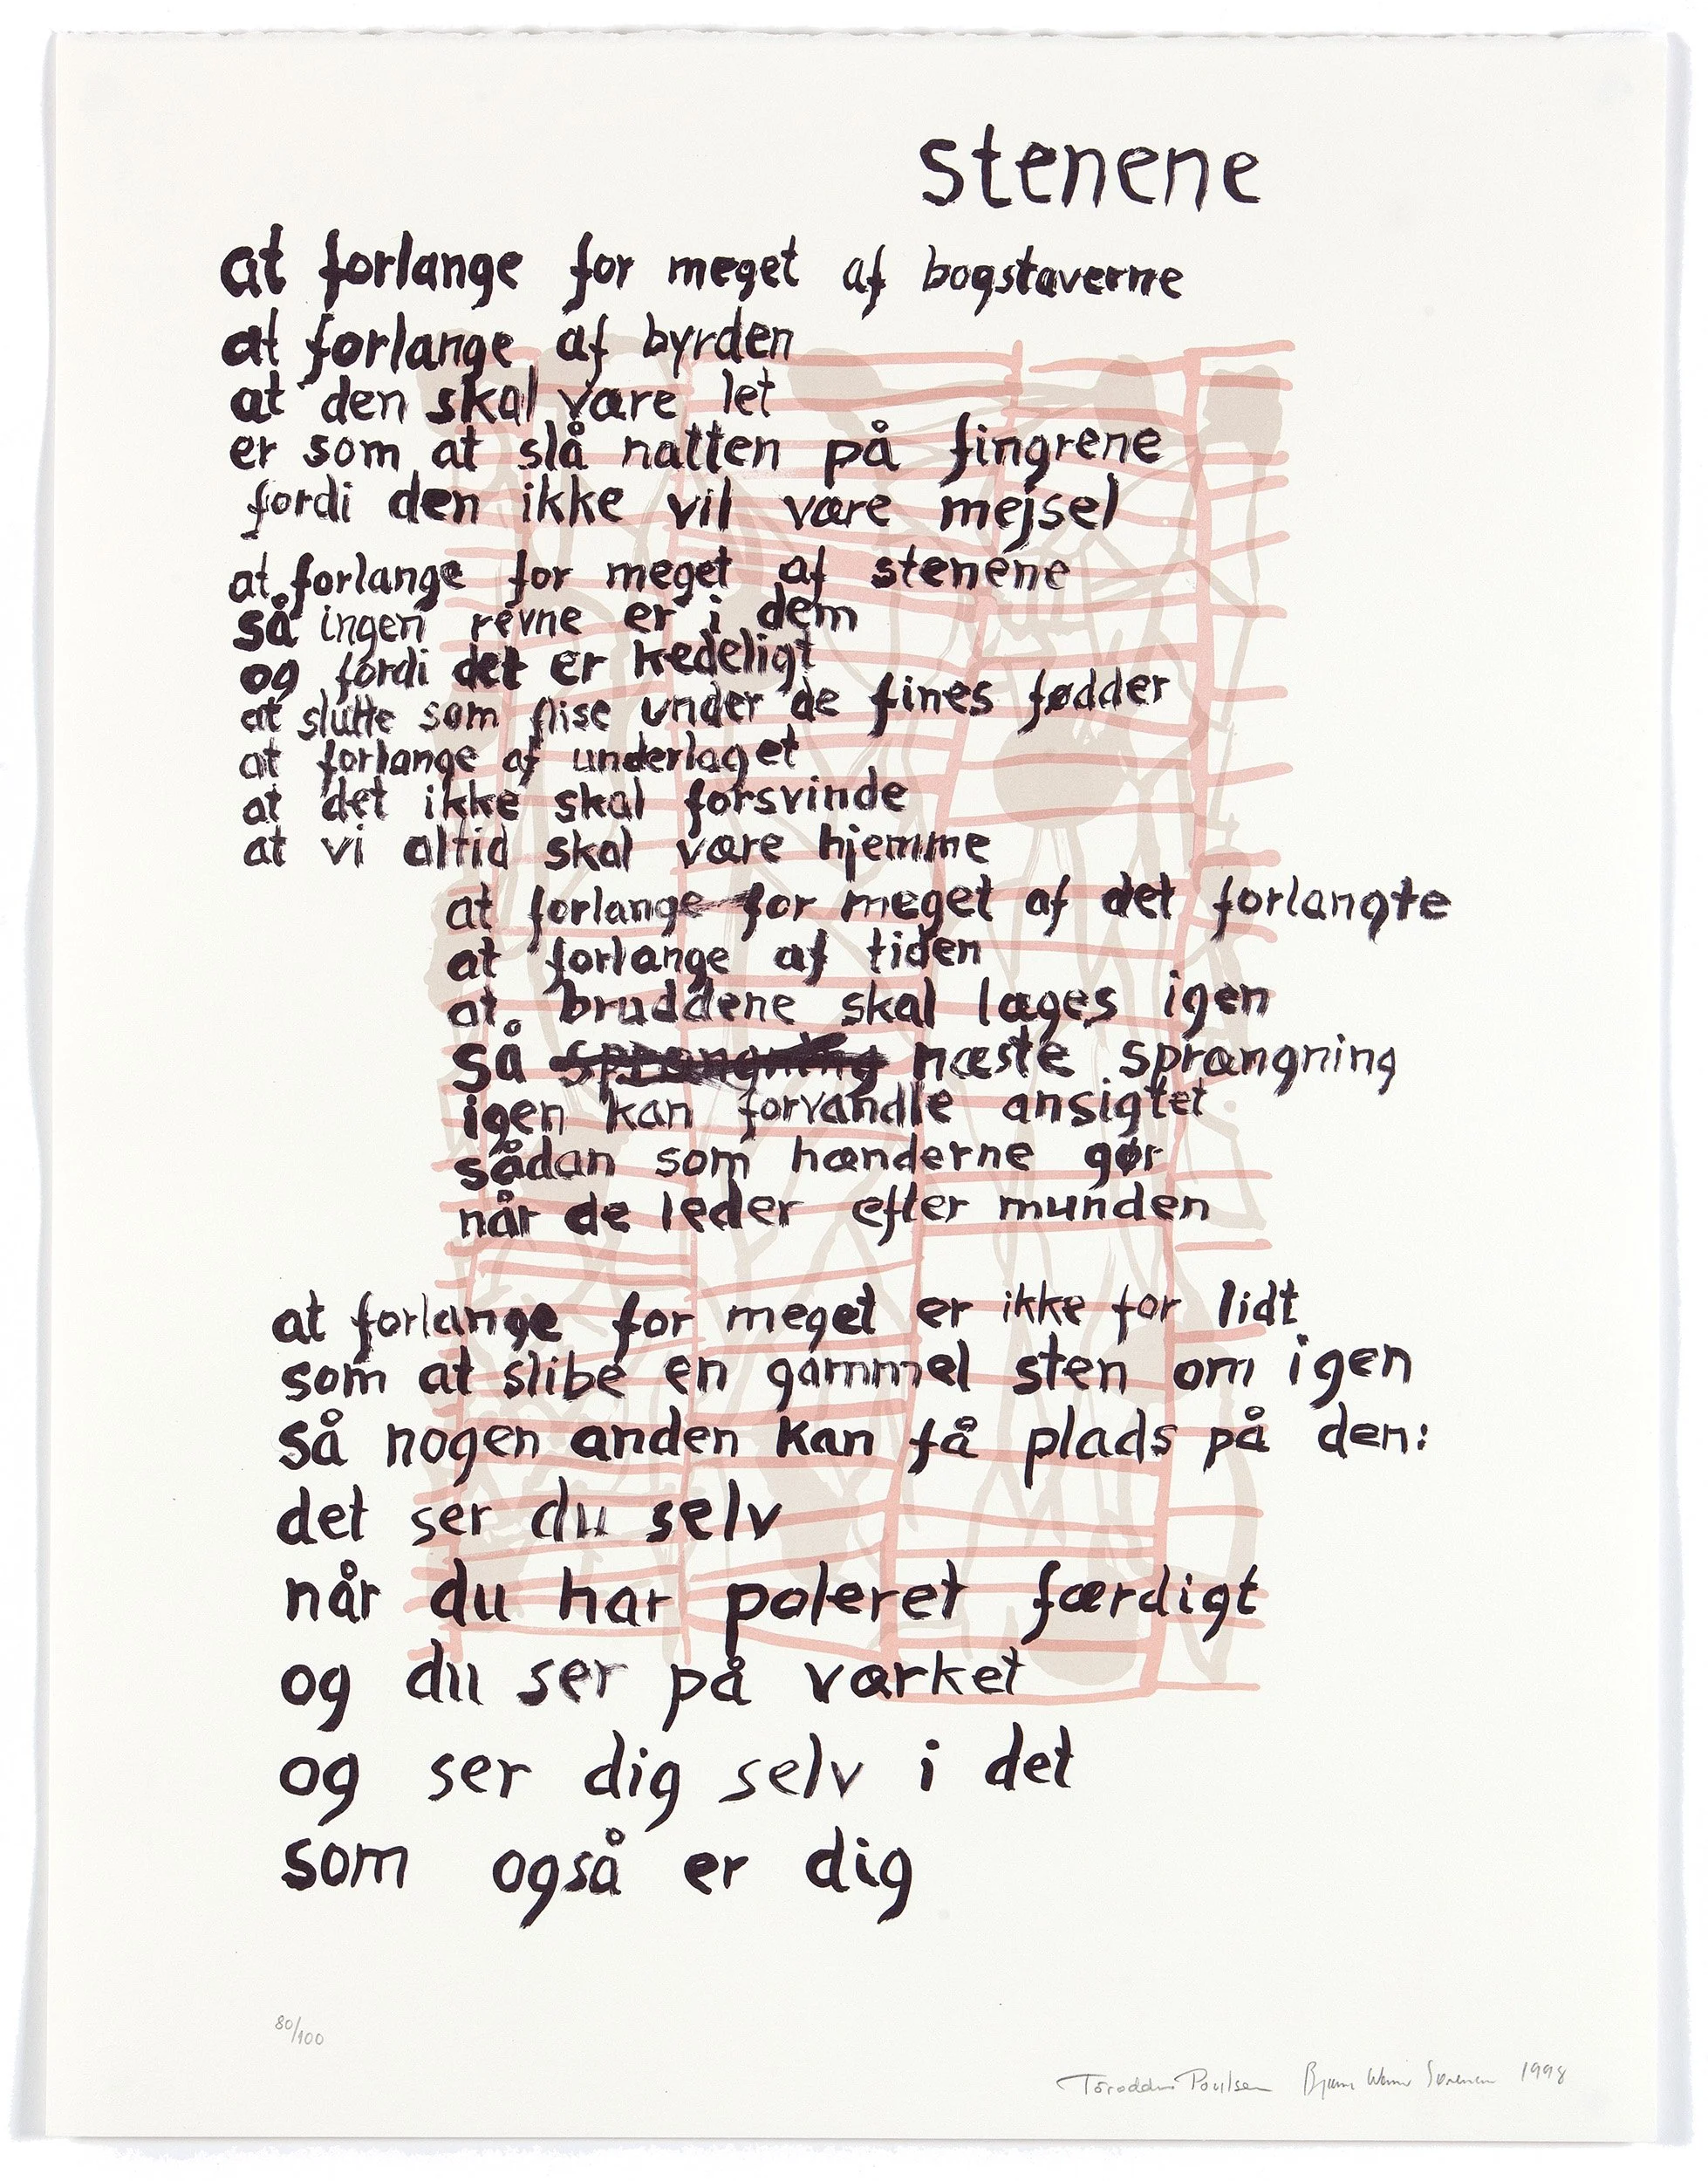 stenene
at forlange for meget af bogstaverne
at forlange af byrden
at den skal være let
er som at slå natten på fingrene
fordi den ikke vil være mejsel
at forlange for meget af stenene
så ingen revne er i dem
og fordi det er kedeligt
at slutte som flise under de fines fødder
at forlange af underlaget
at det ikke skal forsvinde
at vi altid skal være hjemme
at forlange for meget af det forlangte
at forlange af tiden
at bruddene skal læges igen
så sprængning næste sprængning
igen kan forvandle ansigtet
sådan som hænderne gør
når de leder efter munden
at forlange for meget er ikke for lidt
som at slibe en gammel sten om igen
så nogen anden kan få plads på den:
det ser du selv
når du har poleret færdigt
og du ser på værket
og ser dig selv i det
som også er dig
80/100
Tóroddur Poulsen Bjarne Werner Sørensen 1998